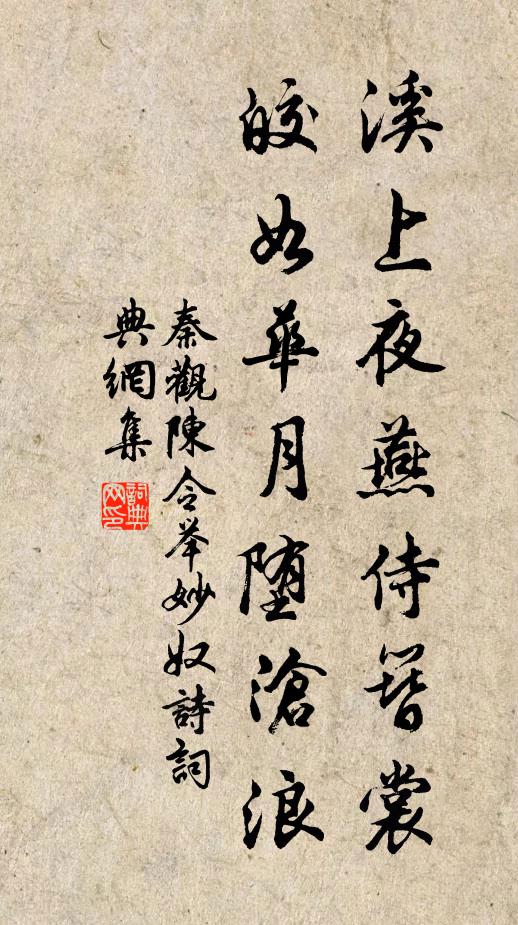 溪上夜燕侍簪裳
皎如華月堕滄浪
秦觀陳令举妙奴詩詞
典網集
詞典
网印